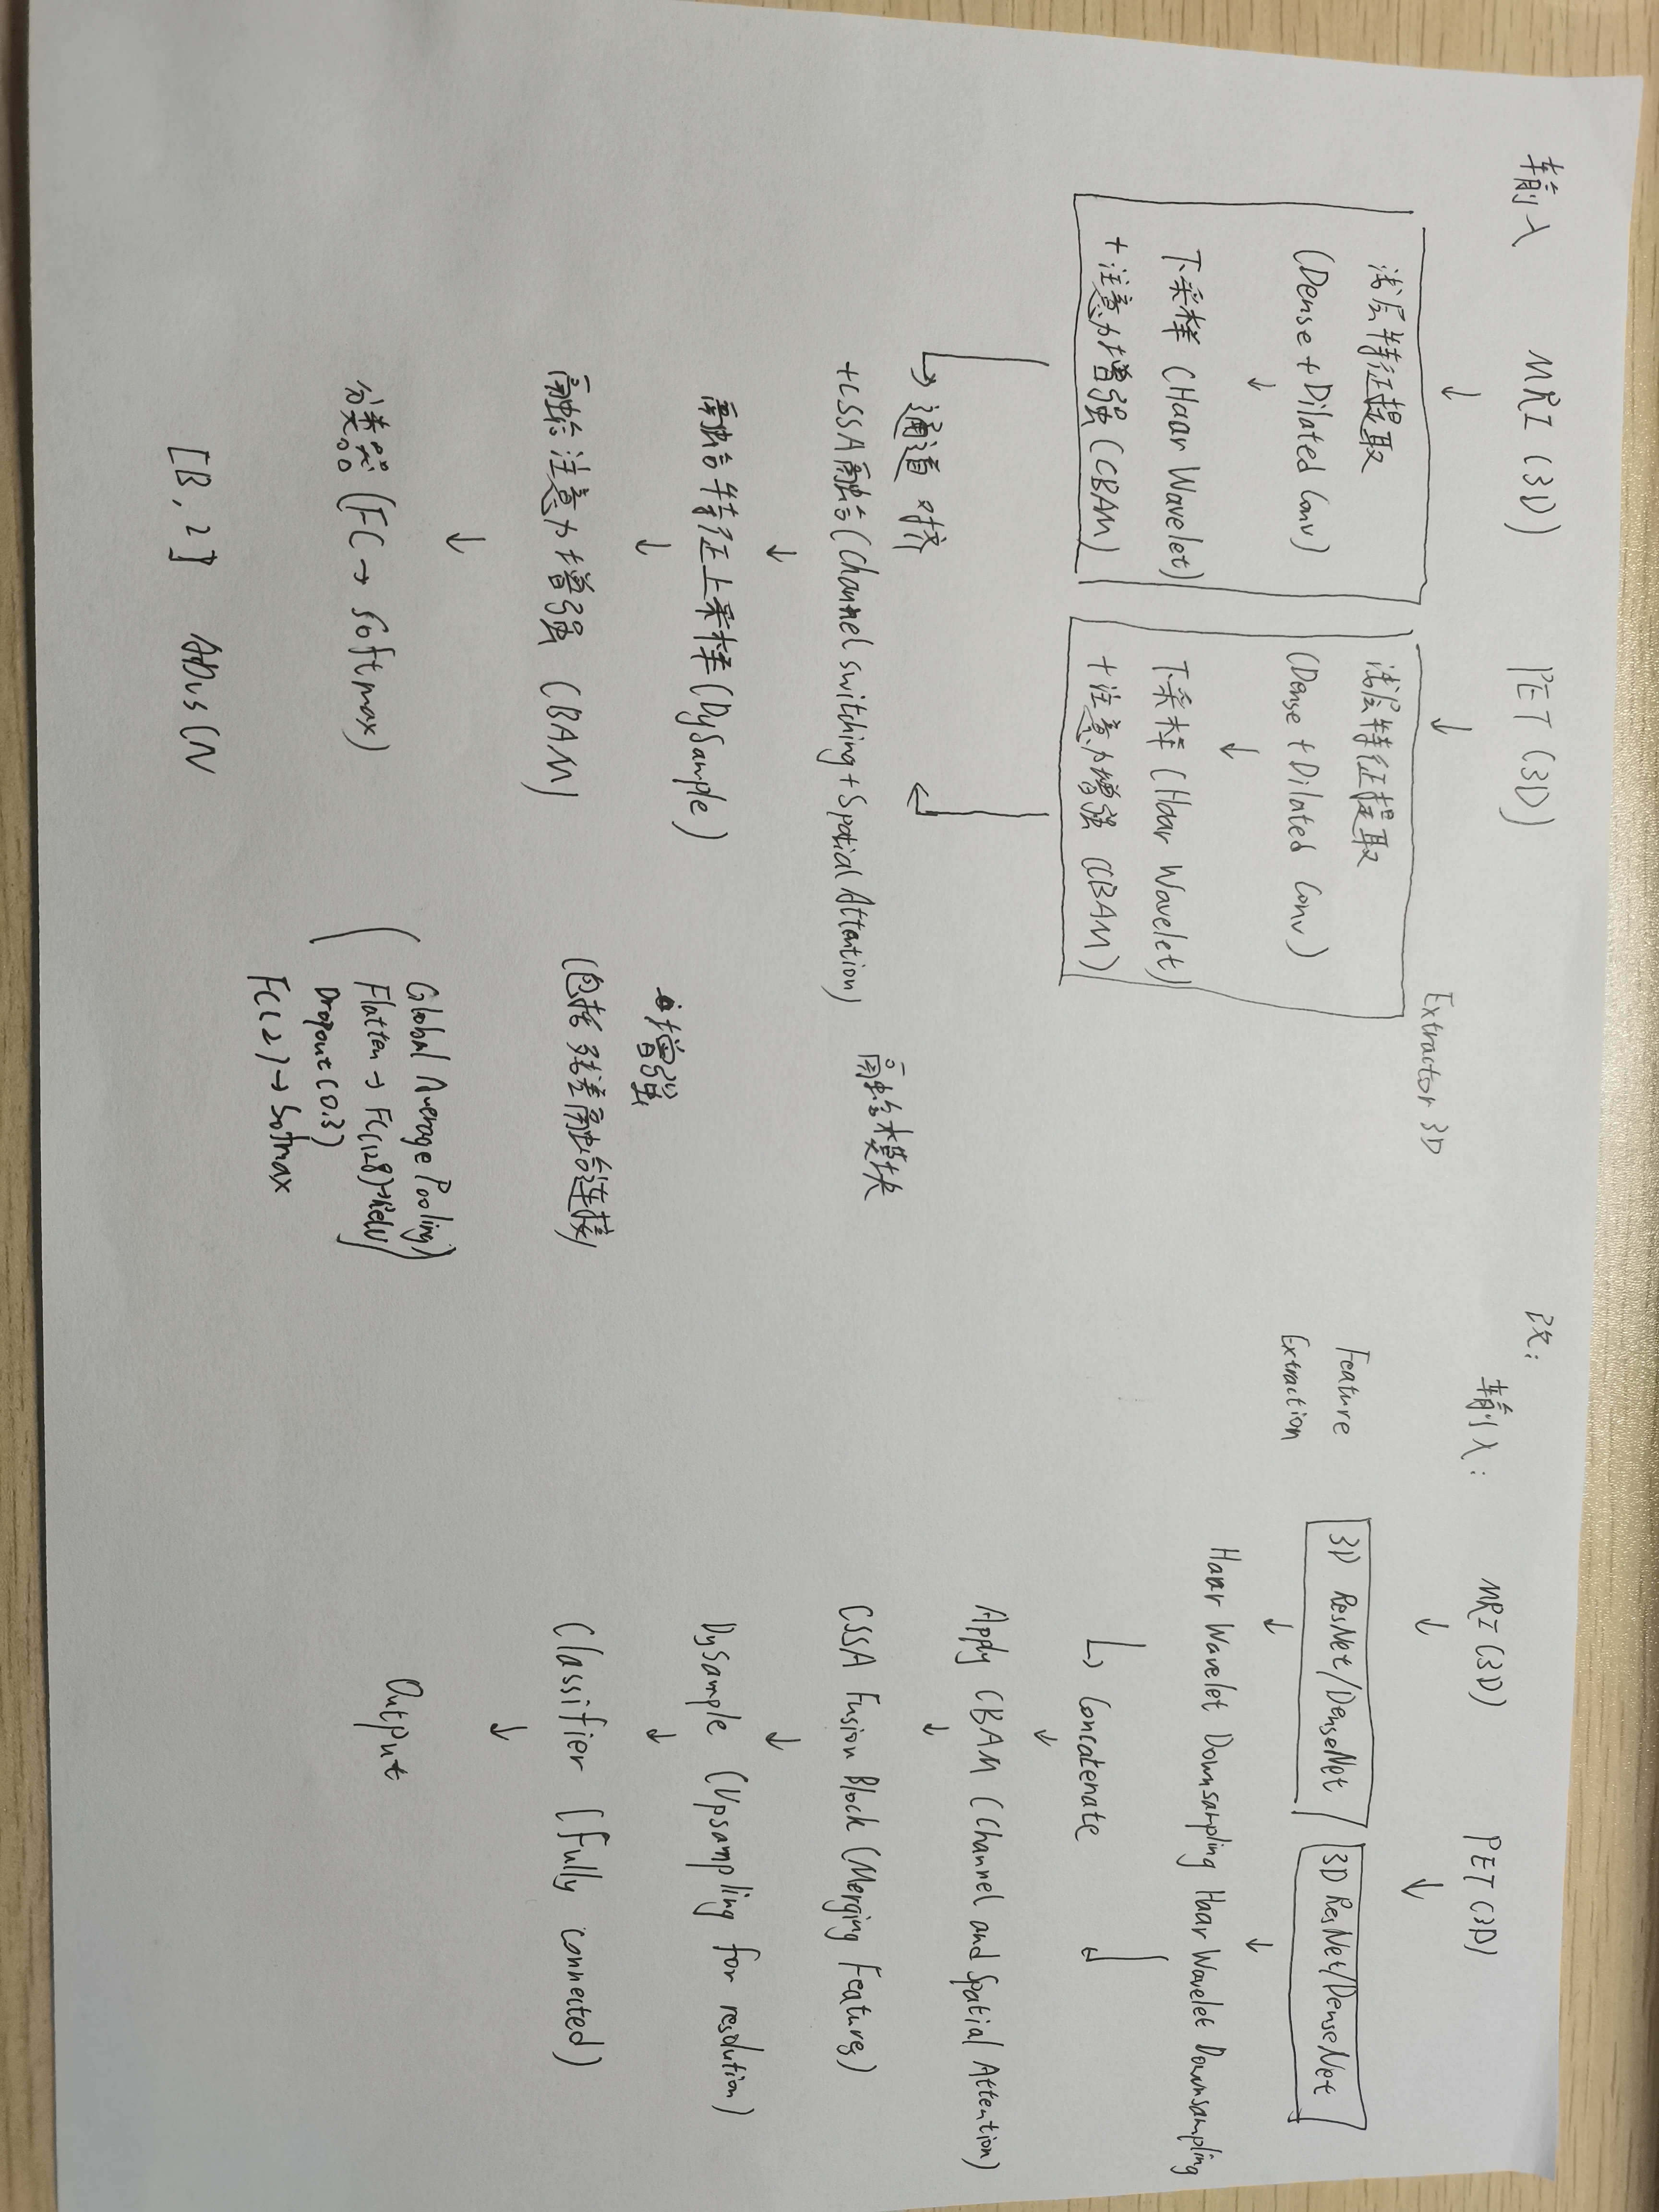 输入 MRI (3D) PET (3D)
Extractor 3D
浅层特征提取
(Dense + Dilated Conv)
↓
下采样 (Haar Wavelet)
+注意力增强 (CBAM)
浅层特征提取
(Dense + Dilated Conv)
↓
下采样 (Haar Wavelet)
+注意力增强 (CBAM)
通道对齐
+CSSA融合(Channel switching+Spatial Attention)
融合模块
↓
融合特征上采样(DySample)
↓
融合注意力增强 (CBAM)
增强
(包括残差融合连接)
↓
分类器(FC → Softmax)
Global Average Pooling)
Flatten → FC(128)→ReLU
Dropout(0.3)
FC(2)→Sofmax
[B, 2] ADvs CN
改:
输入: MRI(3D) PET(3D)
Feature
Extraction
3D ResNet/DenseNet
3D ResNet/DenseNet
Haar Wavelet Downsampling Haar Wavelet Downsampling
Concatenate
↓
Apply CBAM (Channel and Spatial Attention)
↓
CSSA Fusion Block (Merging Features)
↓
DySample (Upsampling for resolution)
↓
Classifier (Fully connected)
↓
Output